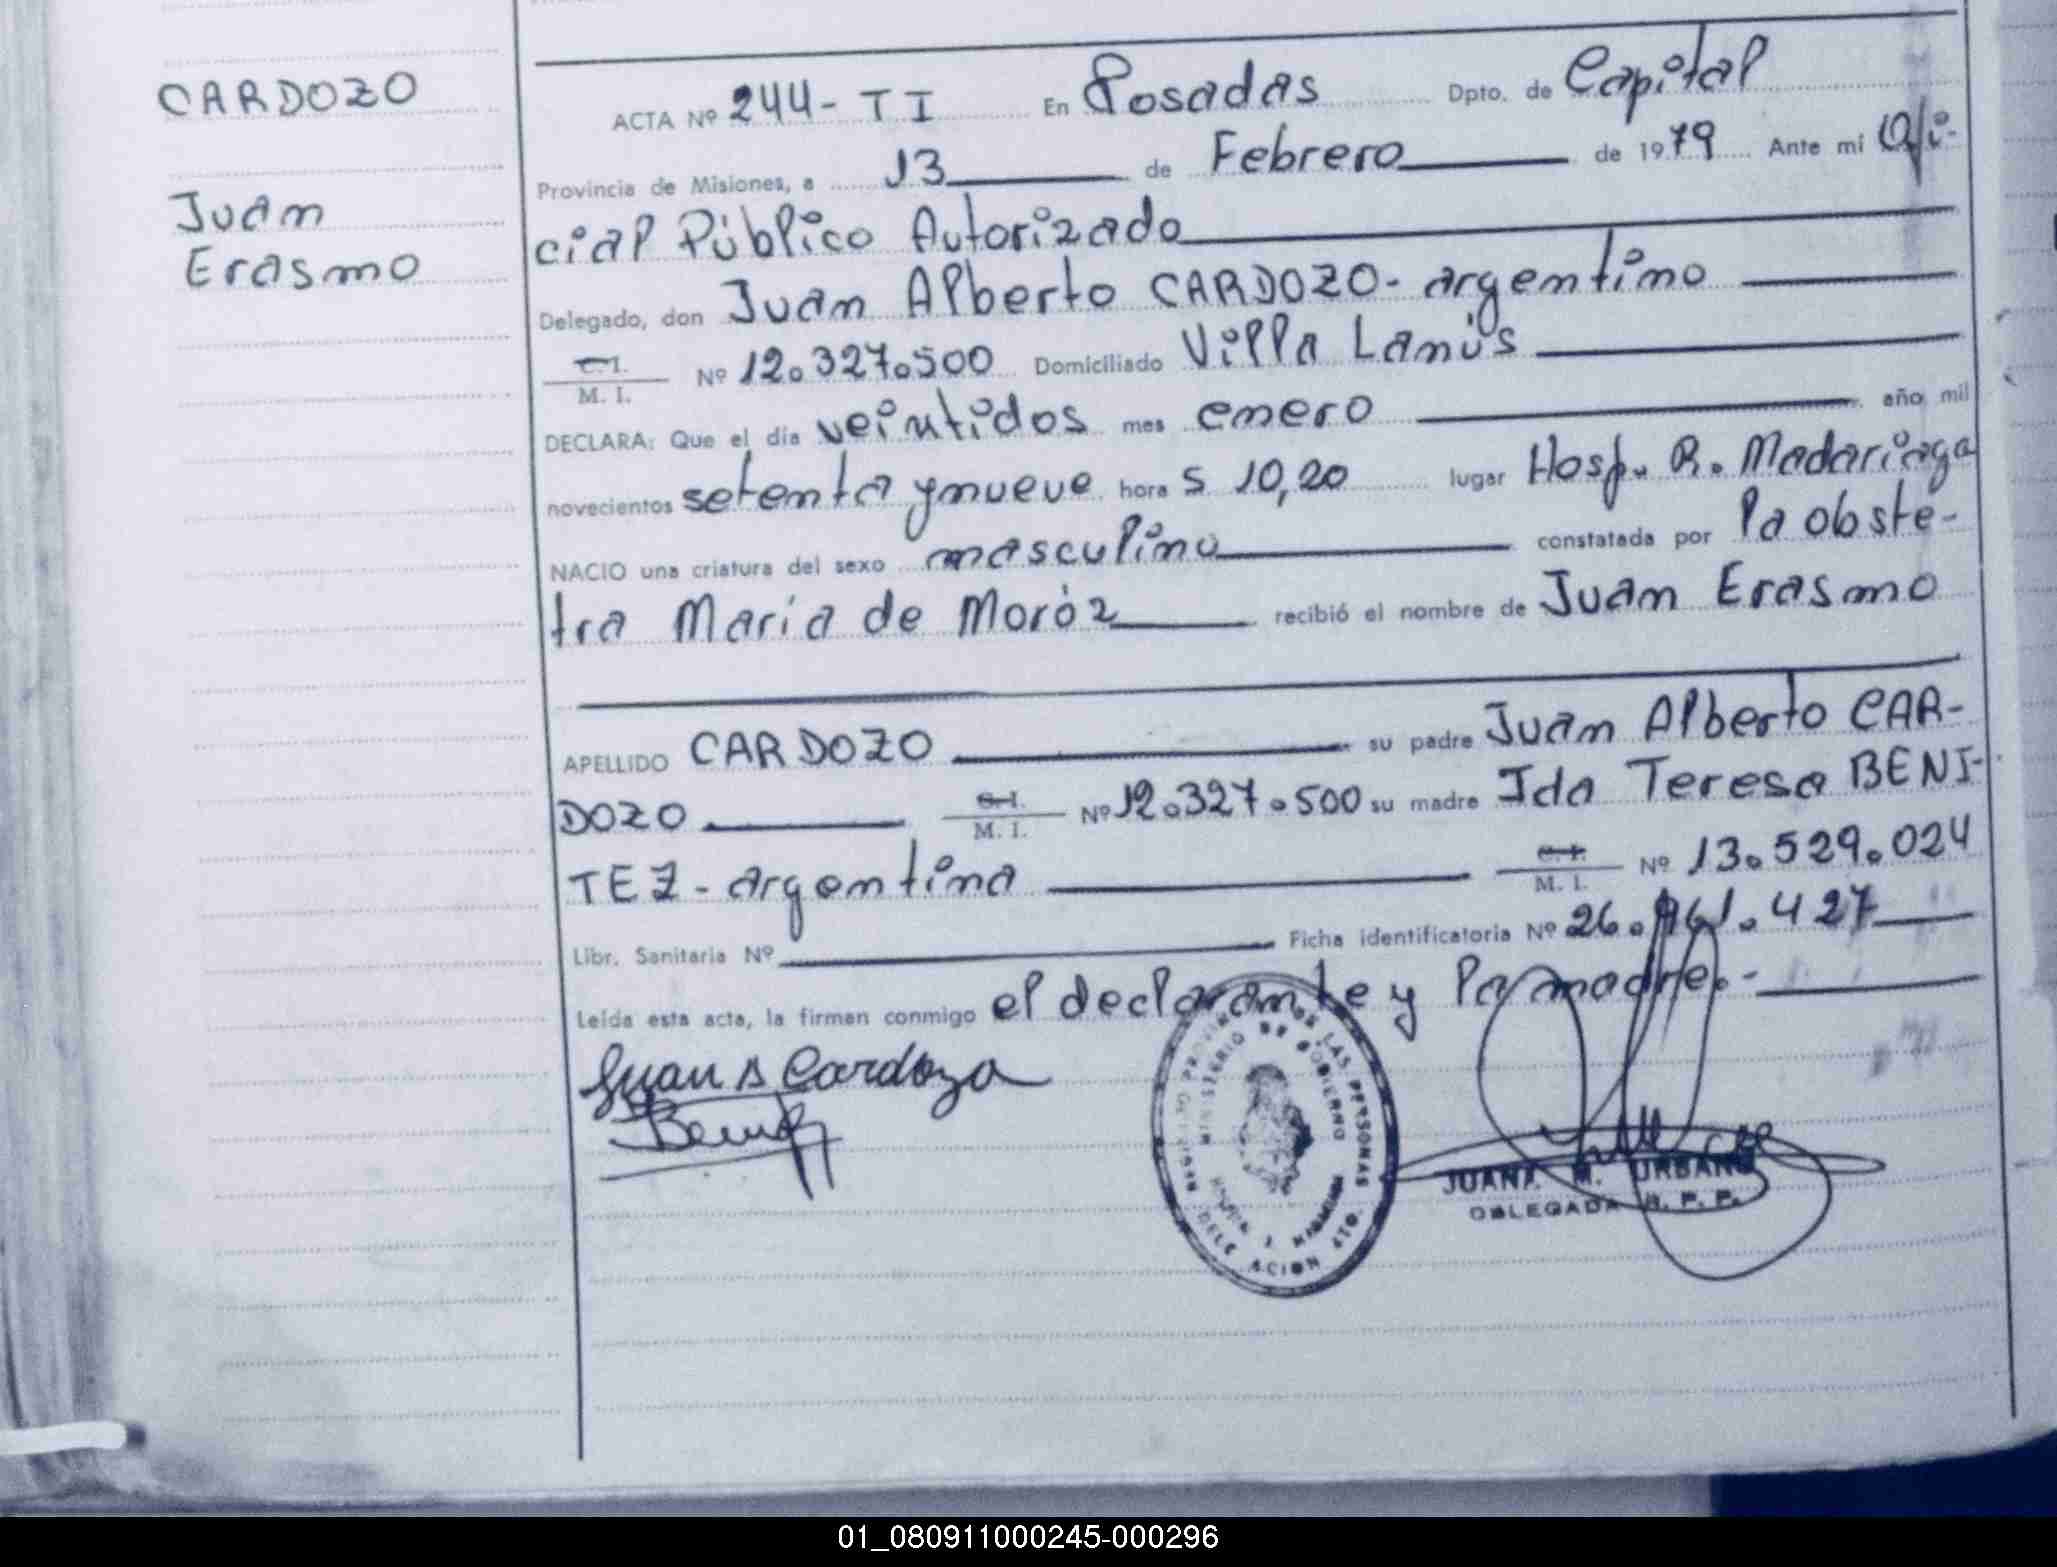 CARDOZO
Juan
Erasmo
ACTA Nº 244 - T I En Posadas Dpto. de Capital
Provincia de Misiones, a 13 de Febrero de 1979 Ante mí Ofi-
cial Público Autorizado
Delegado, don Juan Alberto CARDOZO - argentino
C. I.
M. I. Nº 12.327.500 Domiciliado Villa Lanús
DECLARA: Que el día veintidos mes enero año mil
novecientos setenta y nueve hora s 10,20 lugar Hosp. R. Madariaga
NACIO una criatura del sexo masculino constatada por la obste-
tra María de Moróz recibió el nombre de Juan Erasmo
APELLIDO CARDOZO su padre Juan Alberto CAR-
DOZO C. I.
M. I. Nº 12.327.500 su madre Ida Teresa BENI-
TEZ - argentina C. I.
M. I. Nº 13.529.024
Libr. Sanitaria Nº Ficha identificatoria Nº 26. .427
Leída esta acta, la firman conmigo el declarante y la madre. -
Juan A Cardozo
MINISTERIO DE GOBIERNO
DE LAS PERSONAS
JUANA M. URBANO
DELEGADA R. P. P.
01_080911000245-000296